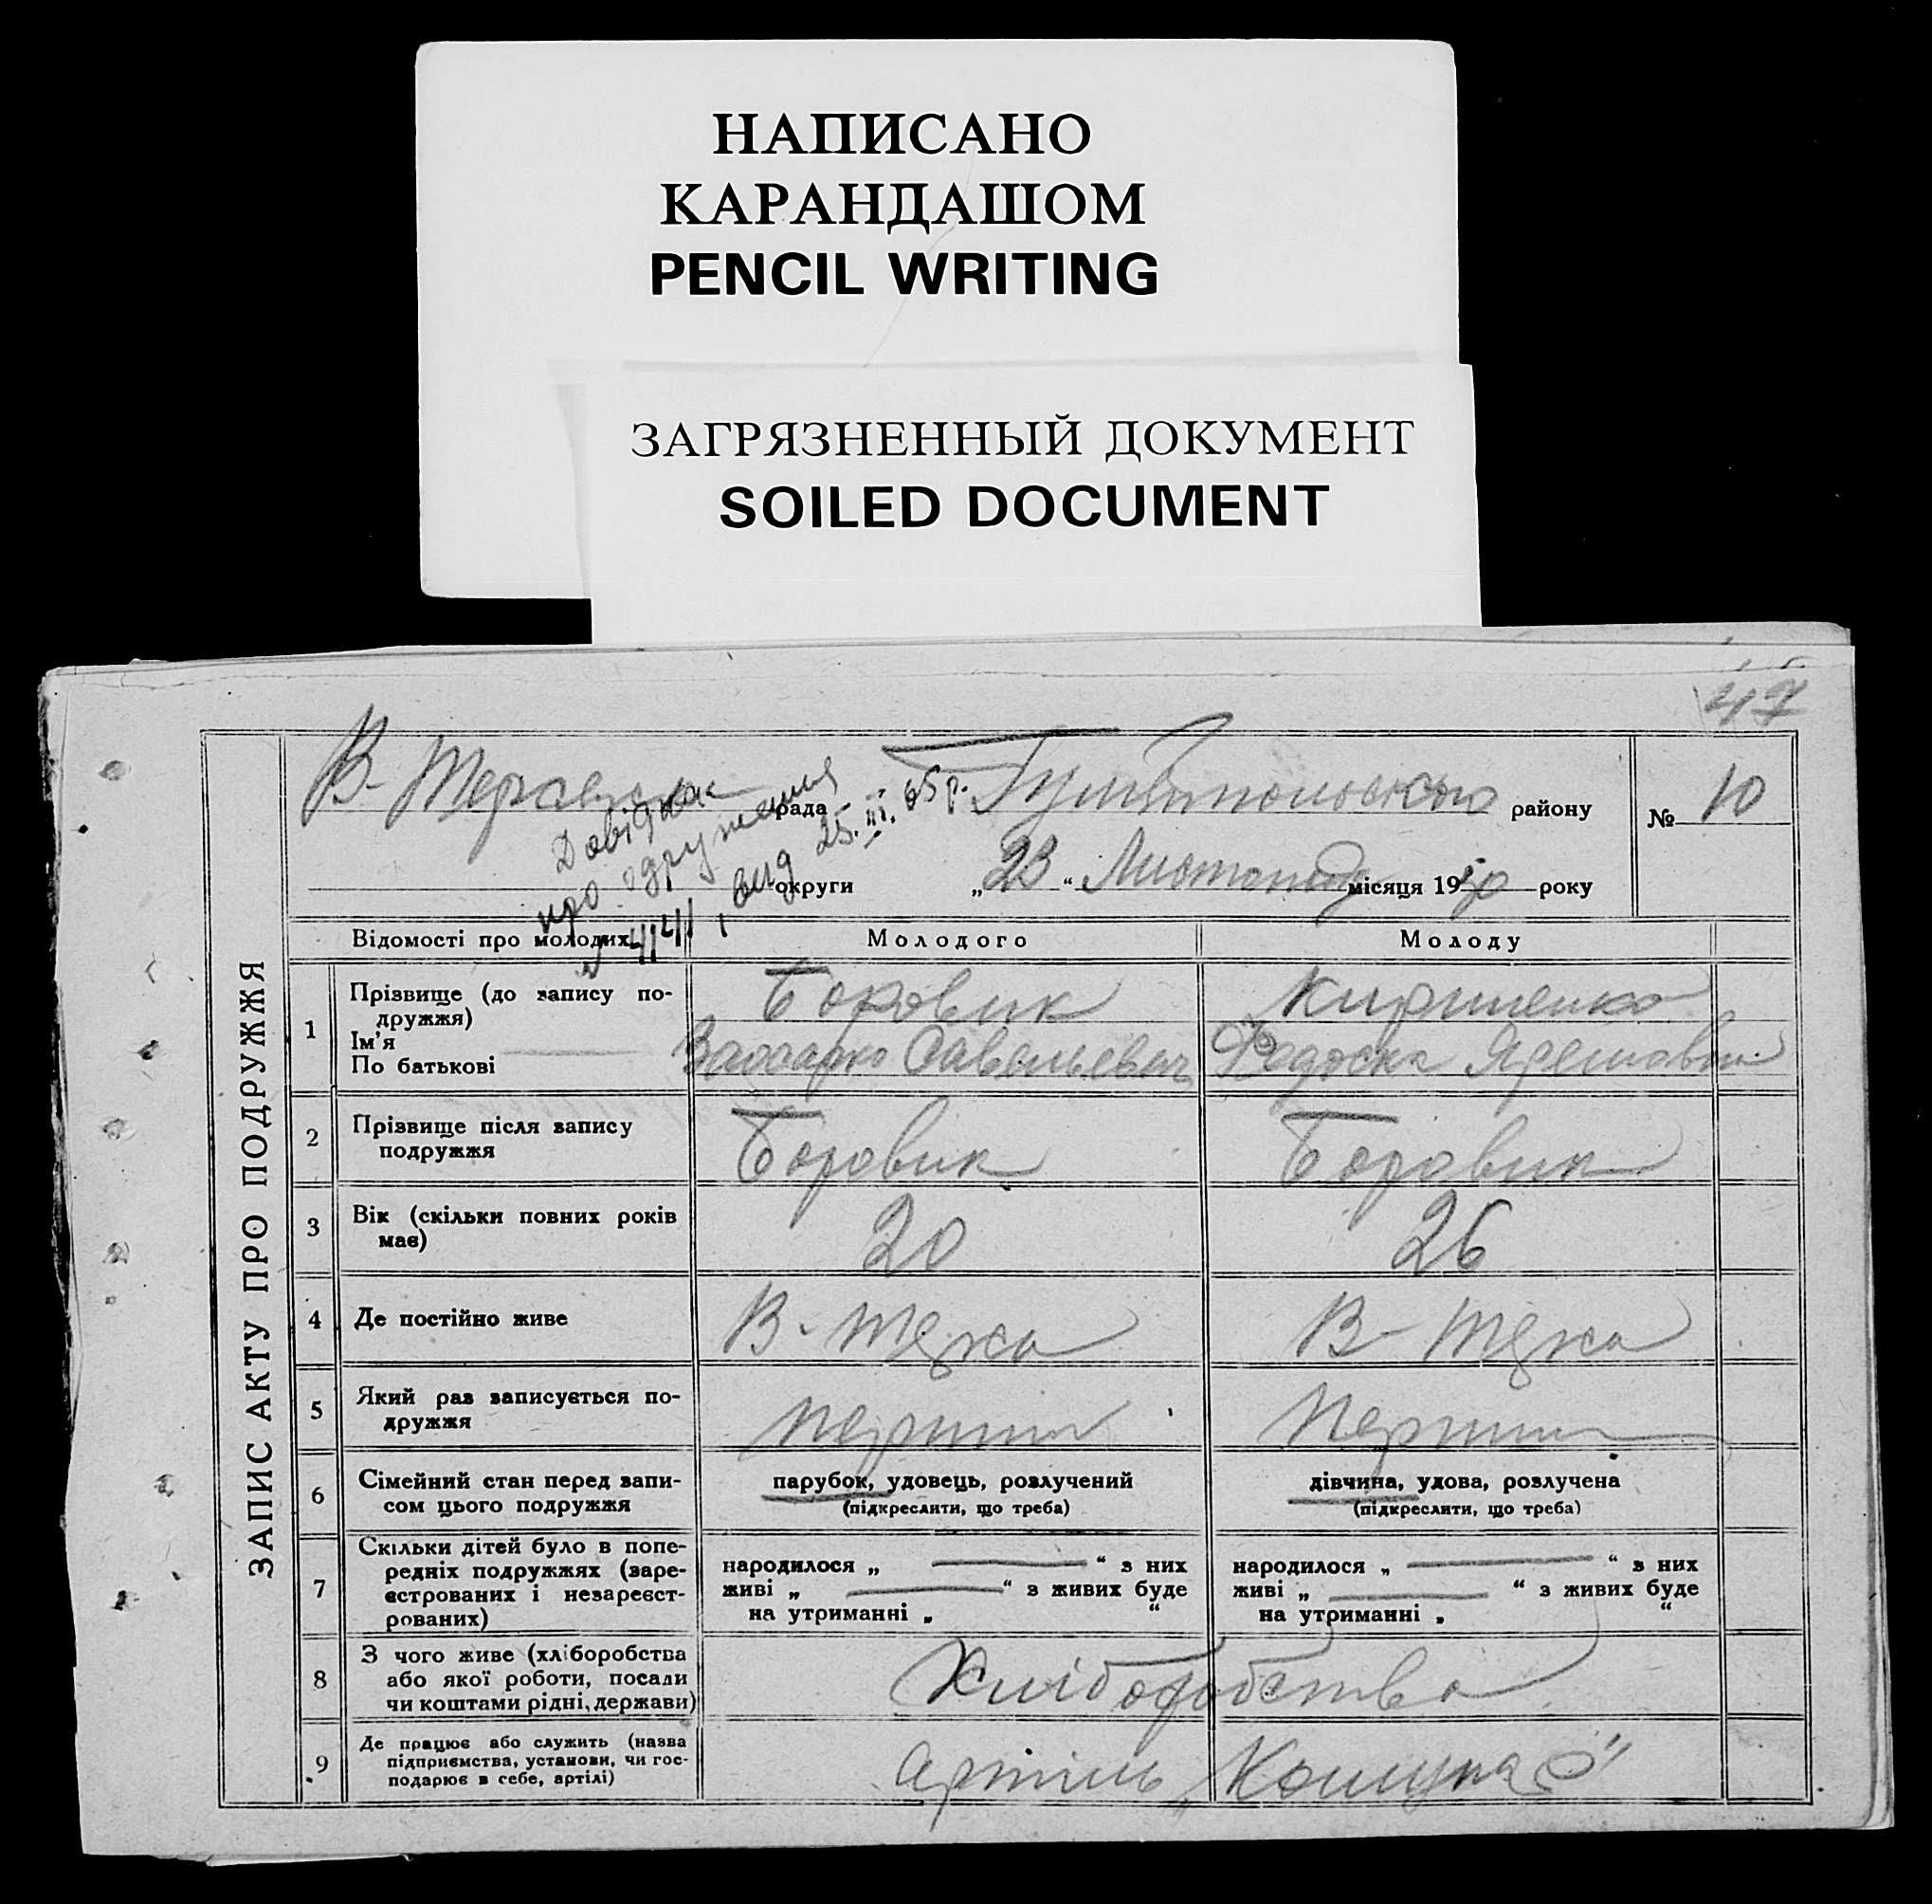 НАПИСАНО
КАРАНДАШОМ
PENCIL WRITING
ЗАГРЯЗНЕННЫЙ ДОКУМЕНТ
SOILED DOCUMENT
47
ЗАПИС АКТУ ПРО ПОДРУЖЖЯ
рада району № 10
округи „23“ Листопада місяця 1930 року
Довідка
про одруження
вид 25.III.65 р.
Відомості про молодих Молодого Молоду
1 Прізвище (до запису по-
дружжя) Боровик Кириченко
Ім'я
По батькові Савельевич
2 Прізвище після запису
подружжя Боровик Боровик
3 Вік (скільки повних років
має) 20 26
4 Де постійно живе
5 Який раз записується по-
дружжя перший
6 Сімейний стан перед запи-
сом цього подружжя
парубок, удовець, розлучений
(підкреслити, що треба)
дівчина, удова, розлучена
(підкреслити, що треба)
7 Скільки дітей було в попе-
редніх подружжях (заре-
єстрованих і незареєст-
рованих)
народилося „ “ з них
живі „ “ з живих буде
на утриманні „ “
народилося „ “ з них
живі „ “ з живих буде
на утриманні „ “
8 З чого живе (хліборобства
або якої роботи, посади
чи коштами рідні, держави) Хліборобство
9 Де працює або служить (назва
підприємства, установи, чи гос-
подарює в себе, артілі) артіль